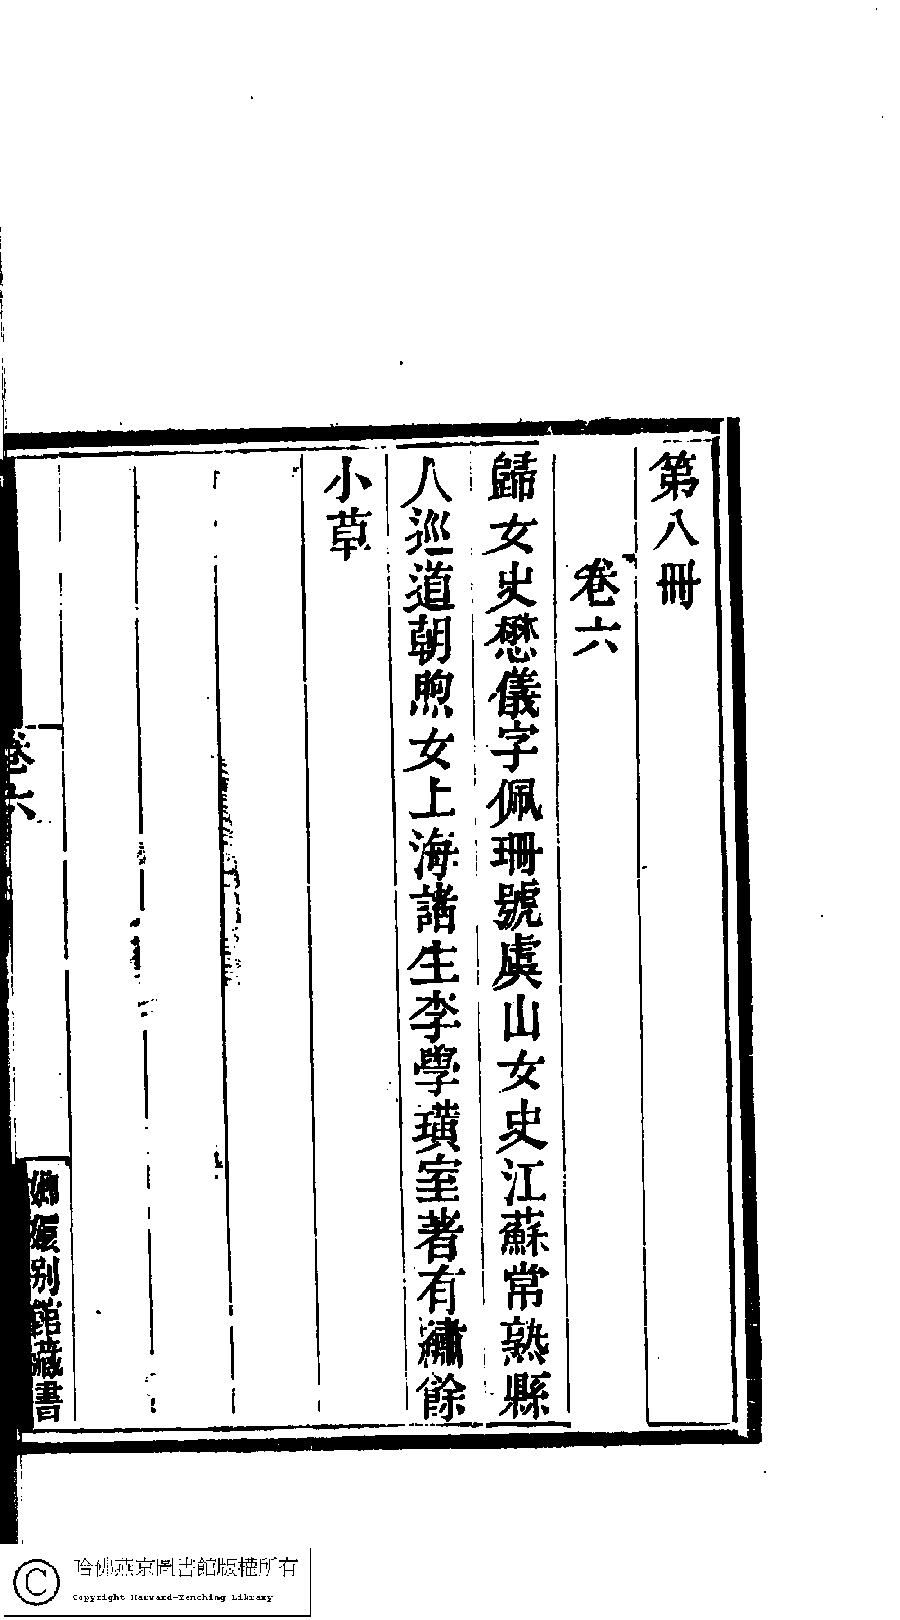 第八冊
卷六
歸女史懋儀字佩珊號虞山女史江蘇常熟縣
人巡道朝煦女上海諸生李學璜室著有繡餘
小草
卷六
嫏嬛別館藏書
哈佛燕京圖書館版權所有
Copyright Harvard-Yenching Library